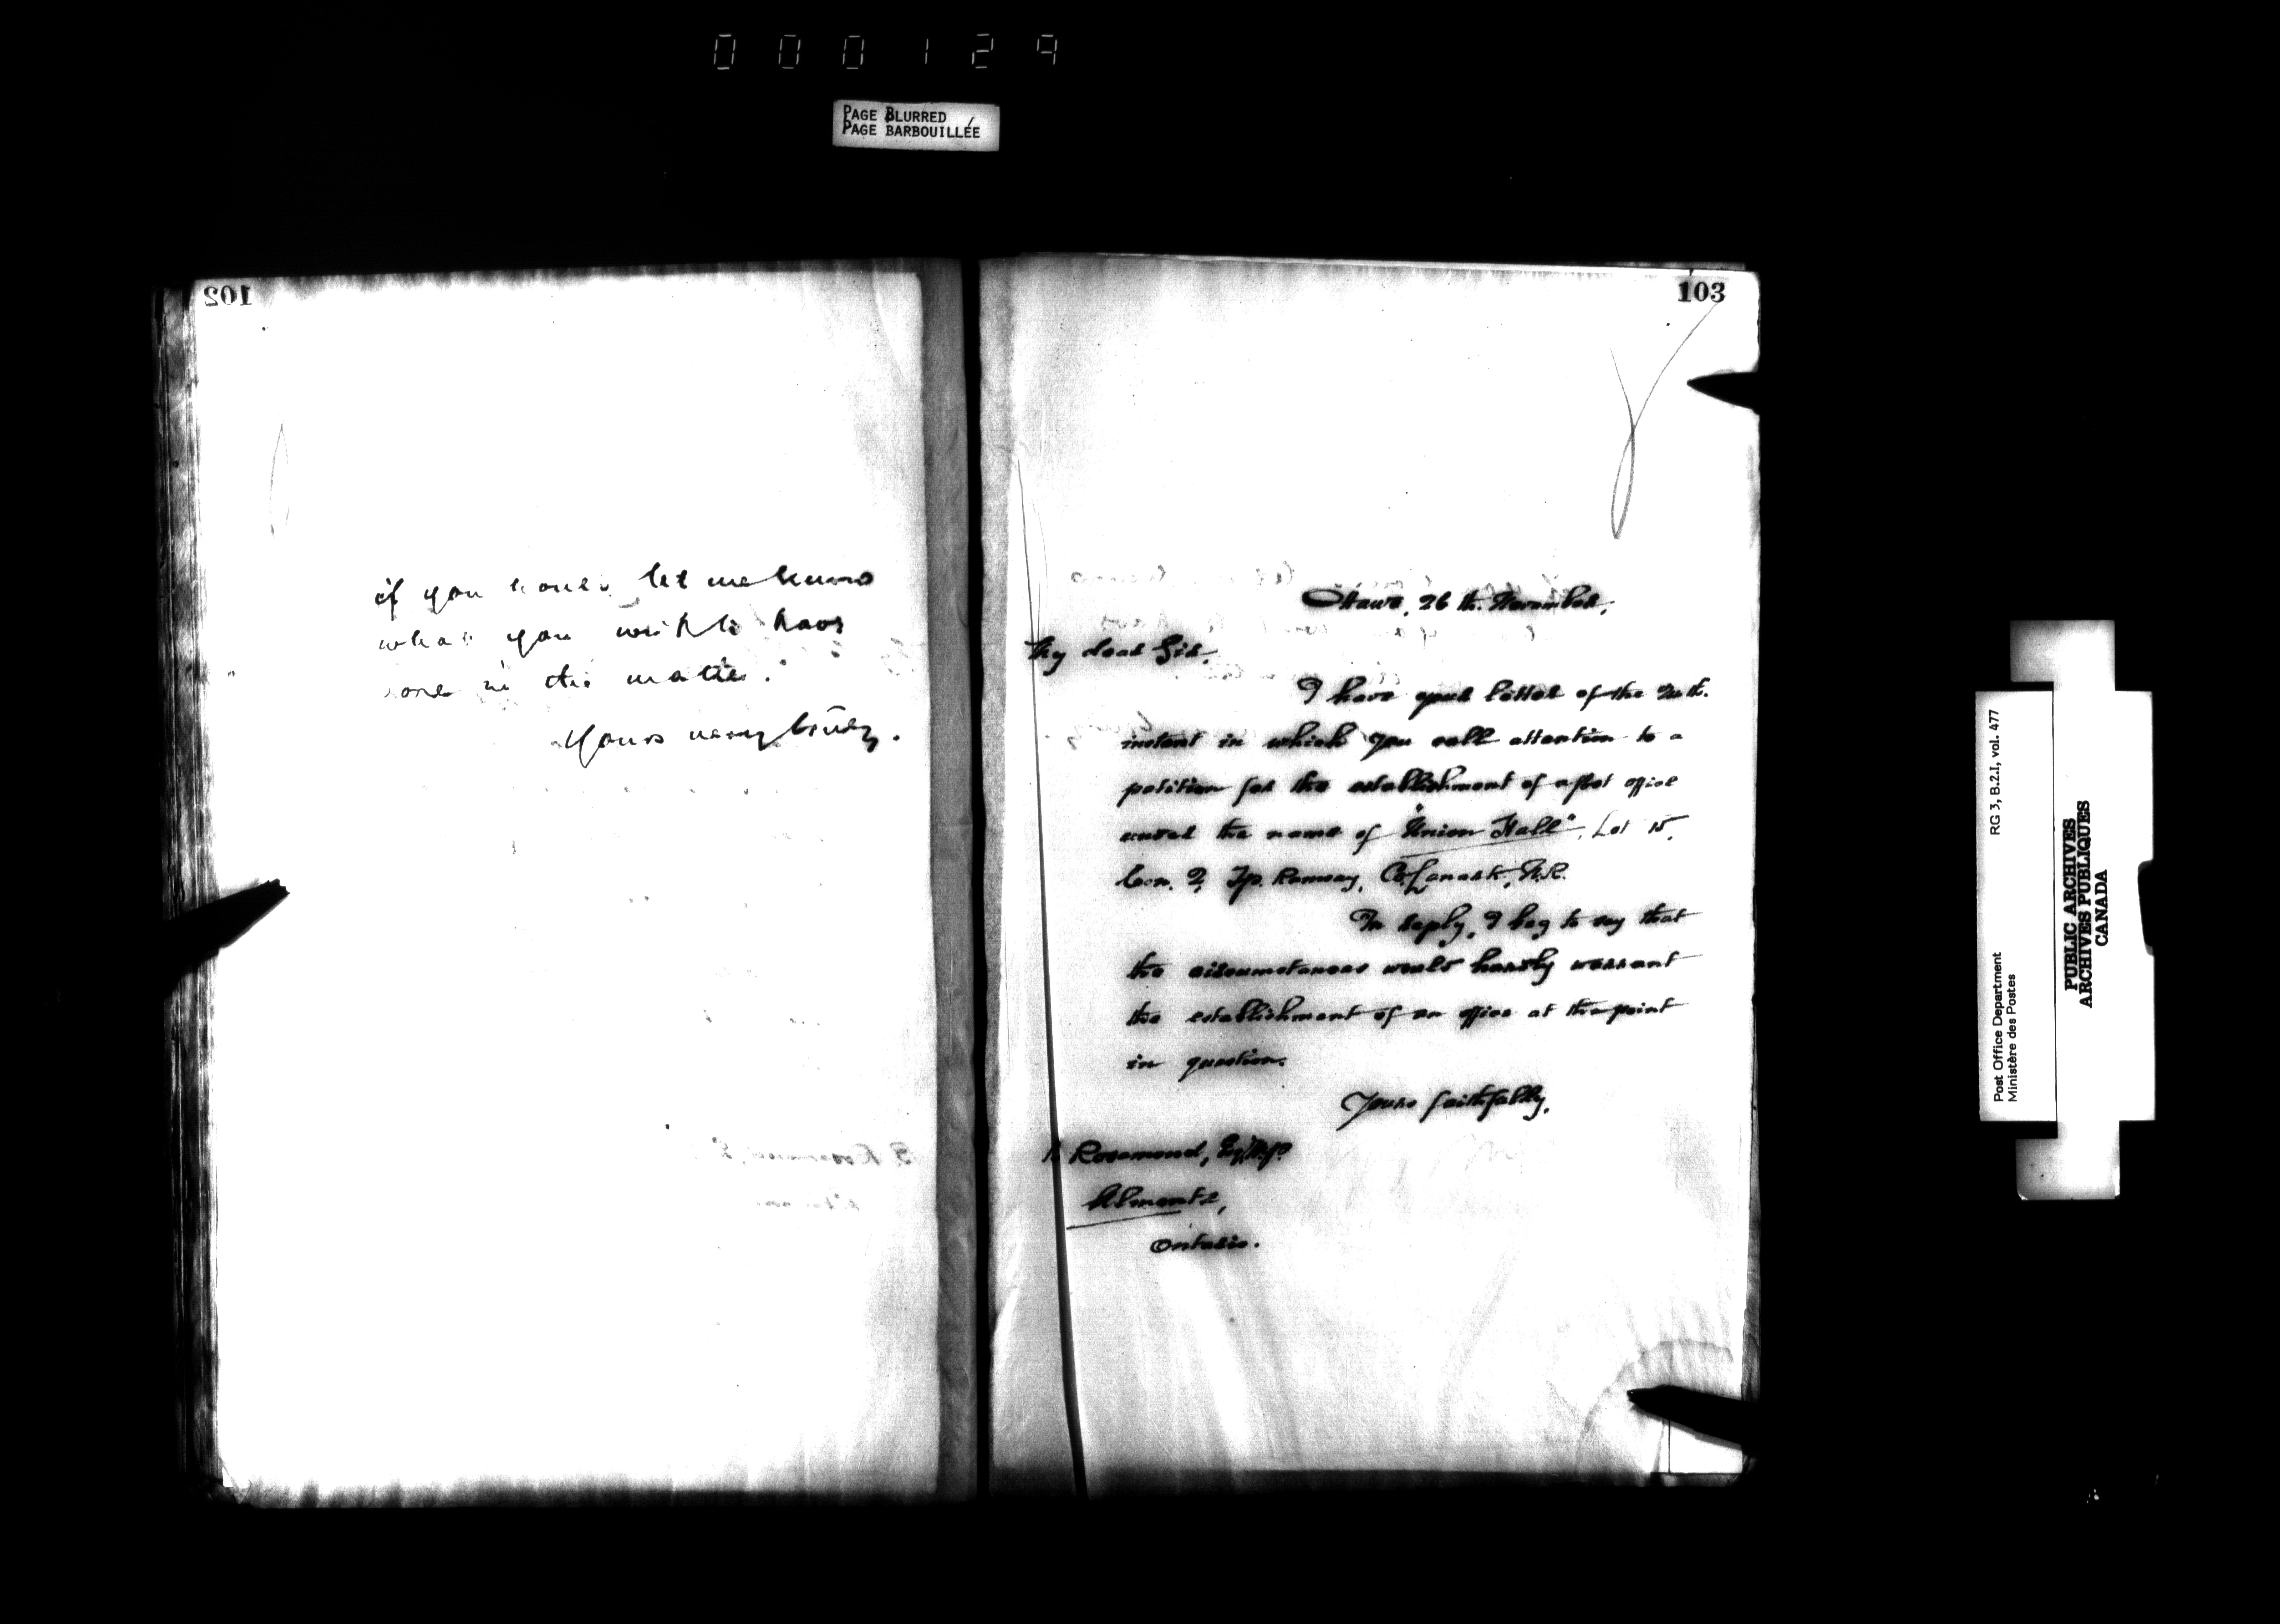 000129
PAGE BLURRED
PAGE BARBOUILLÉE
102
if you would let me know
what you wish to have
done in the matter.
Yours very truly,
103
Ottawa, 26th November,
My dear Sir,
I have your letter of the
instant in which you call attention to a
petition for the establishment of a post office
under the name of "Union Hall", Lot 15,
Con. 2, Tp. Ramsay, Co. Lanark, N.R.
In reply, I beg to say that
the circumstances would hardly warrant
the establishment of an office at the point
in question.
Yours faithfully,
B. Rosamond, Esq., M.P.
Almonte,
Ontario.
Post Office Department
Ministère des Postes
RG 3, B.2.I, vol. 477
PUBLIC ARCHIVES
ARCHIVES PUBLIQUES
CANADA